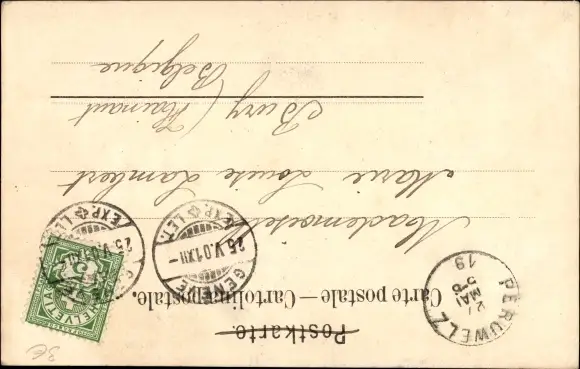 Postkarte.
Carte postale — Cartolina postale.
Mademoiselle
Marie Louise Lambert
Bury (Hainaut
Belgique
GENÈVE
25.V.01.XII
EXP. LET.
GENÈVE
25.V.01.XII
EXP. LET.
HELVETIA
5
PERUWELZ
27
MAI
5-6
19
3€